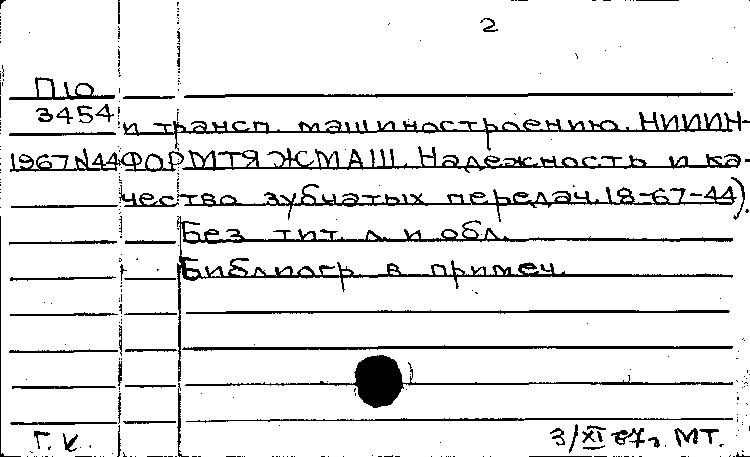 2
П10
3454 и трансп. машиностроению. НИИИН-
1967 N44 ФОРМТЯЖМАШ. Надежность и ка-
чество зубчатых передач. 18-67-44).
Без тит. л. и обл.
Библиогр. в примеч.
Г. К. 3/XI 67г. МТ.